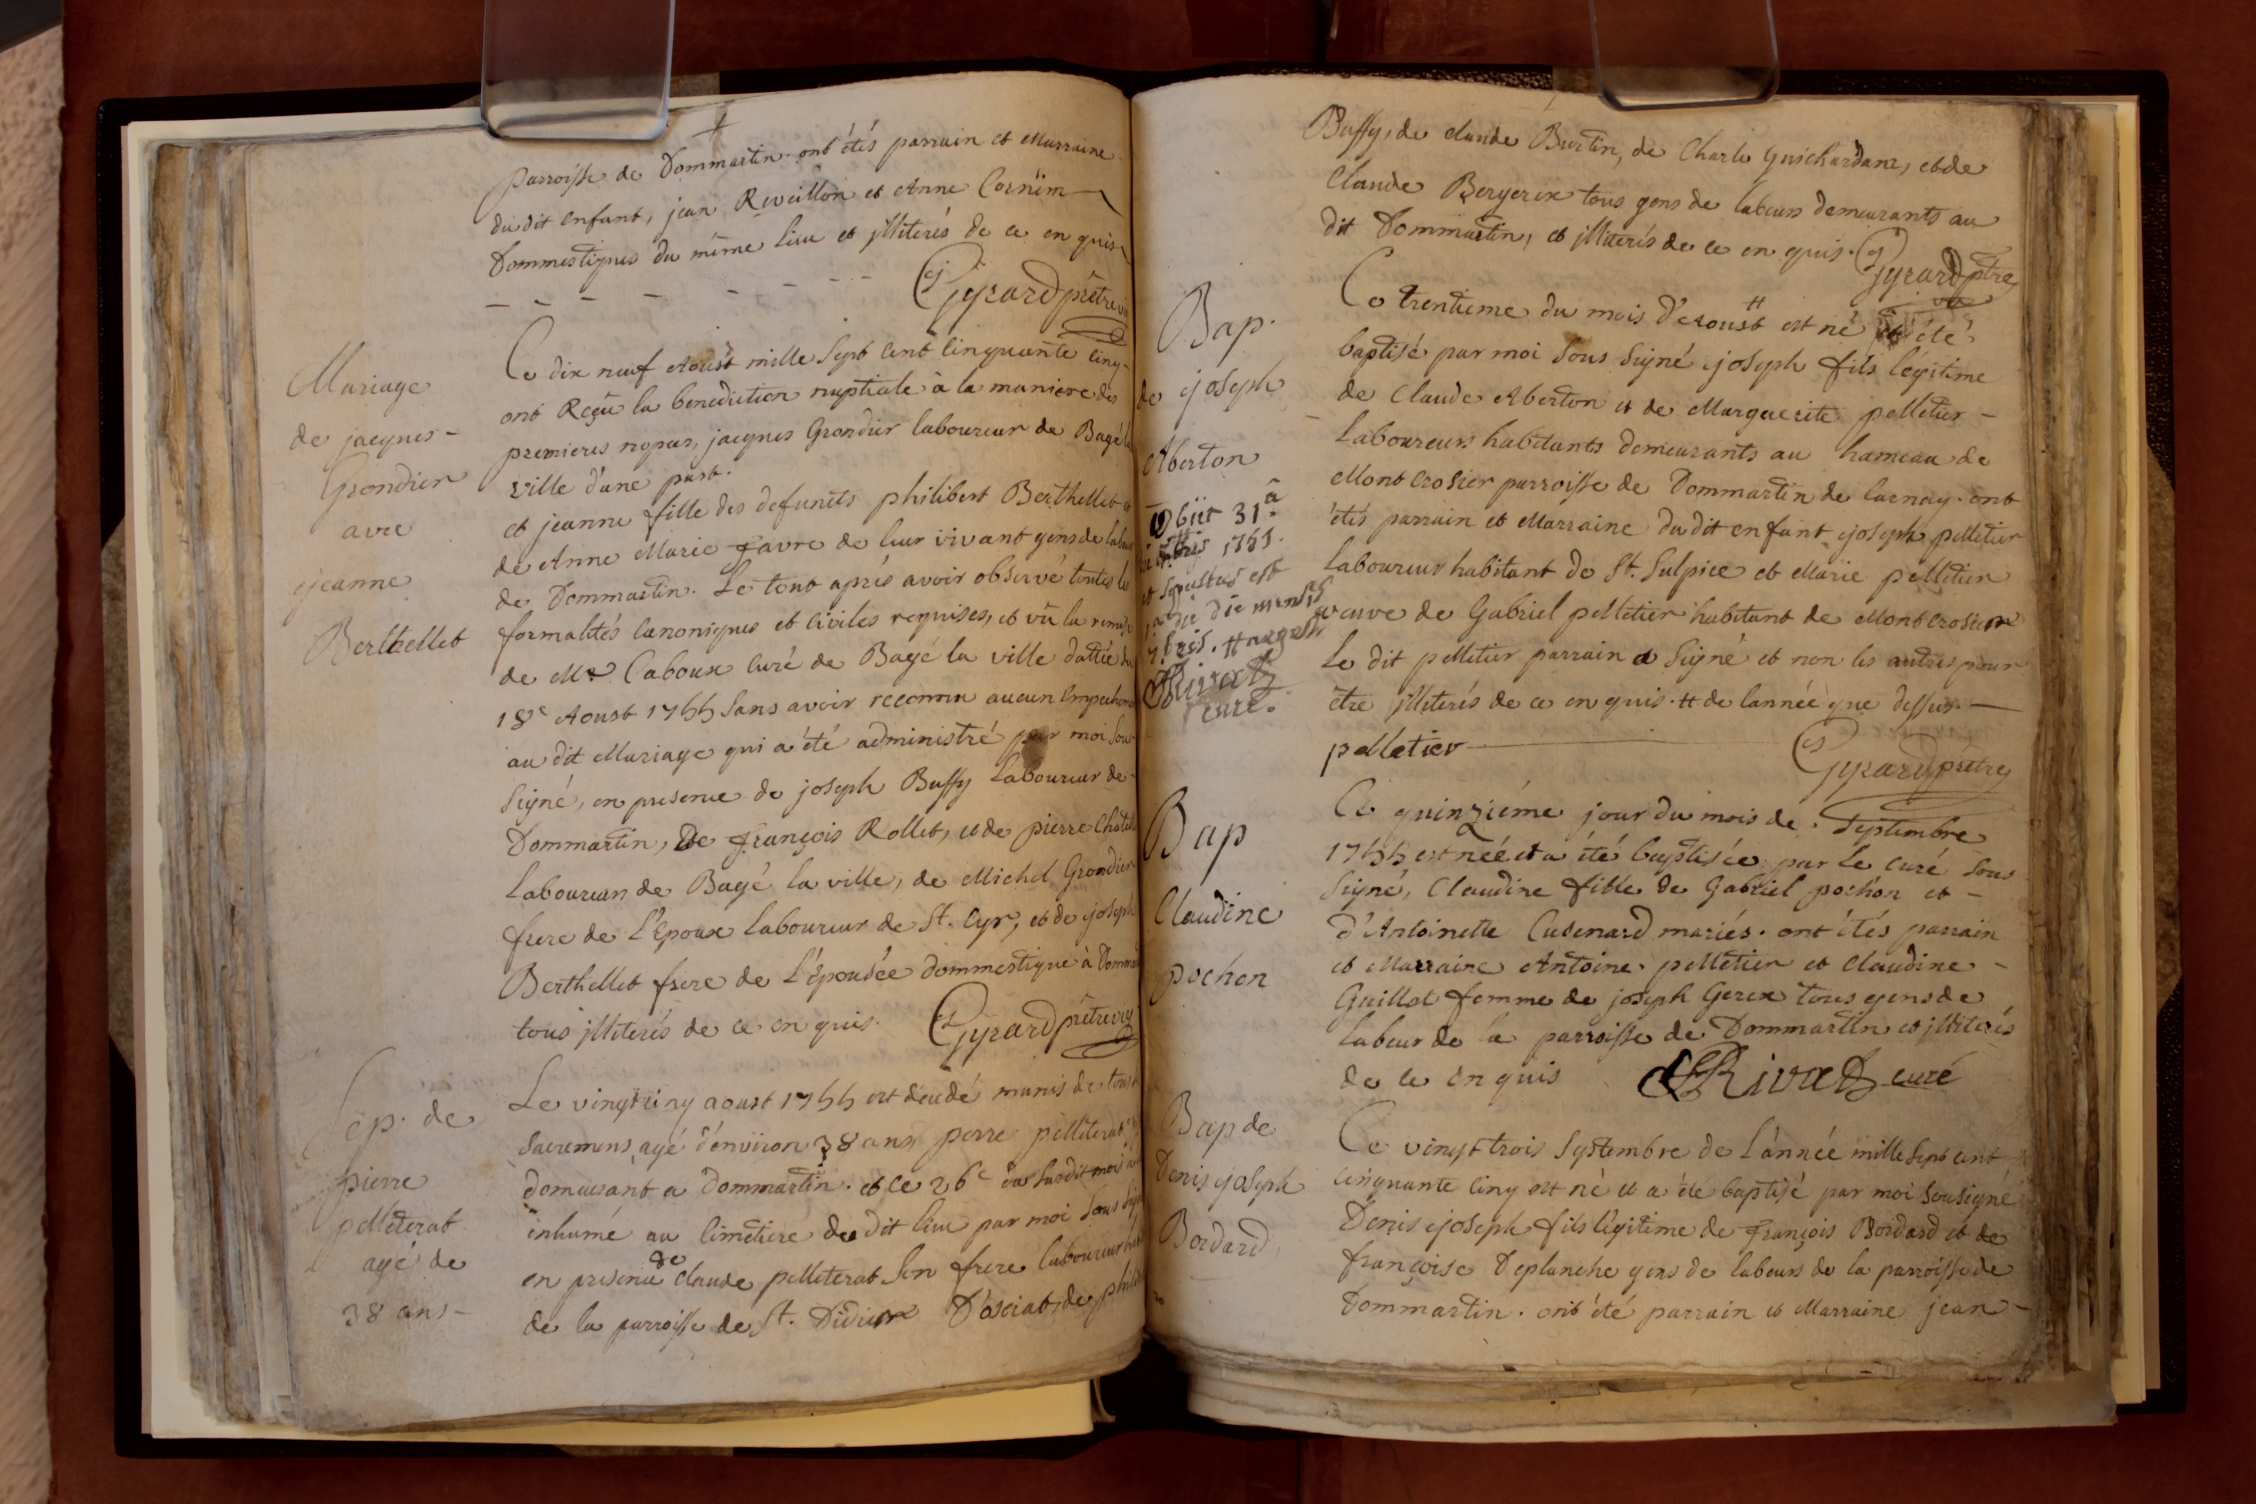 parroisse de Dommartin. ont étés parrain et Marraine
du dit enfant, jean Reveillon et Anne Cornüim
Dommestiques du même lieu et jlliterés de ce en quis
Gyrard prêtre
Mariage
de jacques
Grondier
avec
jeanne
Berthellet
Ce dix neuf Aoust mille Sept Cent Cinquante Cinq
ont Reçu la benediction nuptiale à la maniere des
premieres nopces, jacques Grondier laboureur de Bagé la
ville d'une part.
et jeanne fille des defuncts philibert Berthellet et
de Anne Marie favre de leur vivant gens de labeur
de Dommartin. Le tout aprés avoir observé toutes les
formalités Canoniques et Civiles requises, et vû la remise
de Mr Caboux Curé de Bagé la ville dattée du
18e Aoust 1755 Sans avoir reconnu aucun Empechement
au dit Mariage qui a été administré par moi Sous
Signé, en presence de joseph Buffy Laboureur de
Dommartin, De françois Rollet, et de pierre
Laboureur de Bagé la ville, de Michel Grondier
frere de L'Epoux Laboureur de St. Cyr, et de joseph
Berthellet frere de L'épousée dommestique à
tous jlliterés de ce en quis. Gyrard prêtre vic
Sep. de
pierre
pelleterat
agé de
38 ans
Le vingt cinq aoust 1755 est décedé munis de tous
Sacremens, agé d'environ 38 ans pierre pelleterat
demeurant a Dommartin. et ce 26e du susdit mois
inhumé au Cimetiere du dit lieu par moi Sous
en presence de Claude pelleterat Son frere laboureur
de la parroisse de St. Didier D'osciat, de
Buffy, de Claude Burtin, de Charle Guichardanz, et de
Claude Bergerex tous gens de labeurs demeurants au
dit Dommartin, et jlliterés de ce en quis. Gyrard ptre
Bap.
de joseph
Aberton
Obiit 31a
1755.
et Sepultus est
die mensis
Rivat
curé.
Ce trentieme du mois d'Aoust # est né et été
baptisé par moi Sous Signé joseph fils légitime
de Claude Aberton et de Marguerite pelletier
Laboureurs habitants demeurants au hameau de
Mont Crosier parroisse de Dommartin de Larnay. ont
étés parrain et Marraine du dit enfant joseph pelletier
Laboureur habitant de St. Sulpice et Marie pelletier
veuve de Gabriel pelletier habitant de Mont Crosier
Le dit pelletier parrain a Signé et non les autres pour
être jlliterés de ce en quis. # de lannée que dessus
pelletier Gyrard prêtre
Bap
Claudine
pochon
Ce quinziéme jour du mois de Septembre
1755 est née et a été baptisée par Le Curé Sous
Signé, Claudine fille de Gabriel pochon et
d'Antoinette Cusenard mariés. ont étés parrain
et Marraine Antoine pelletier et Claudine
Guillot femme de joseph Gerex tous gens de
Labeur de la parroisse de Dommartin et jlliterés
de ce en quis Rivat curé
Bap de
Denis joseph
Bordard
Ce vingt trois Septembre de L'année mille Sept cent
Cinquante Cinq est né et a été baptisé par moi Sousigné
Denis joseph fils légitime de françois Bordard et de
françoise Deplanche gens de labeurs de la parroisse de
Dommartin. ont été parrain et Marraine jean